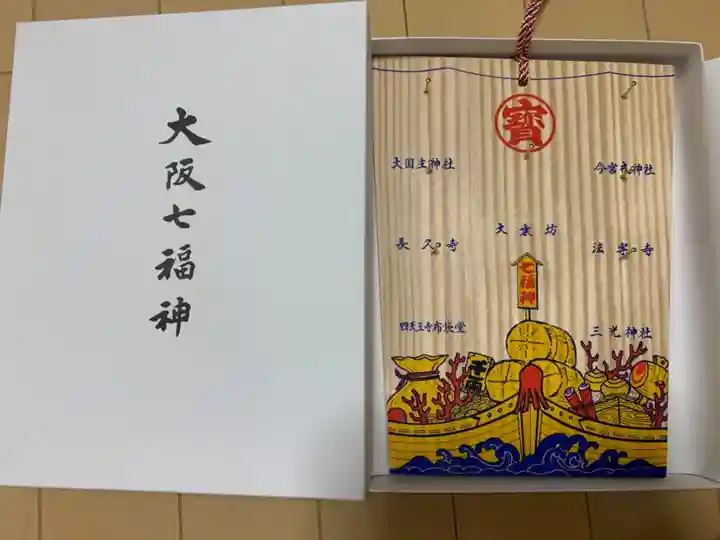 大阪七福神
寳
大国主神社
今宮戎神社
大乗坊
長久寺
法案寺
七福神
四天王寺布袋堂
三光神社
千両